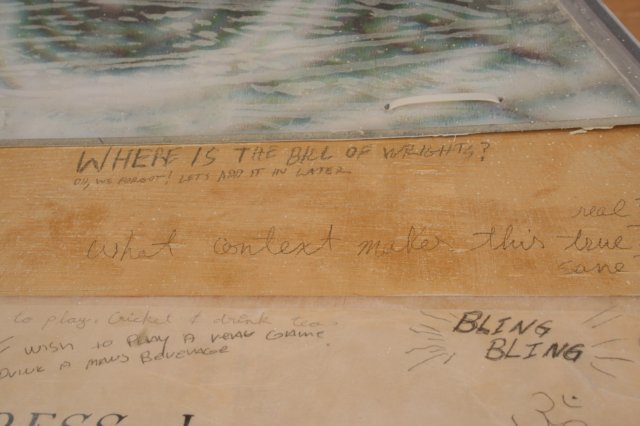 WHERE IS THE BILL OF WRIGHTS?
OH, WE FORGOT! LET'S ADD IT IN LATER
real
what context makes this true
sane
to play. Cricket & drink tea.
I WISH TO PLAY A REAL GAME.
DRINK A MANS BEVERAGE
BLING
BLING